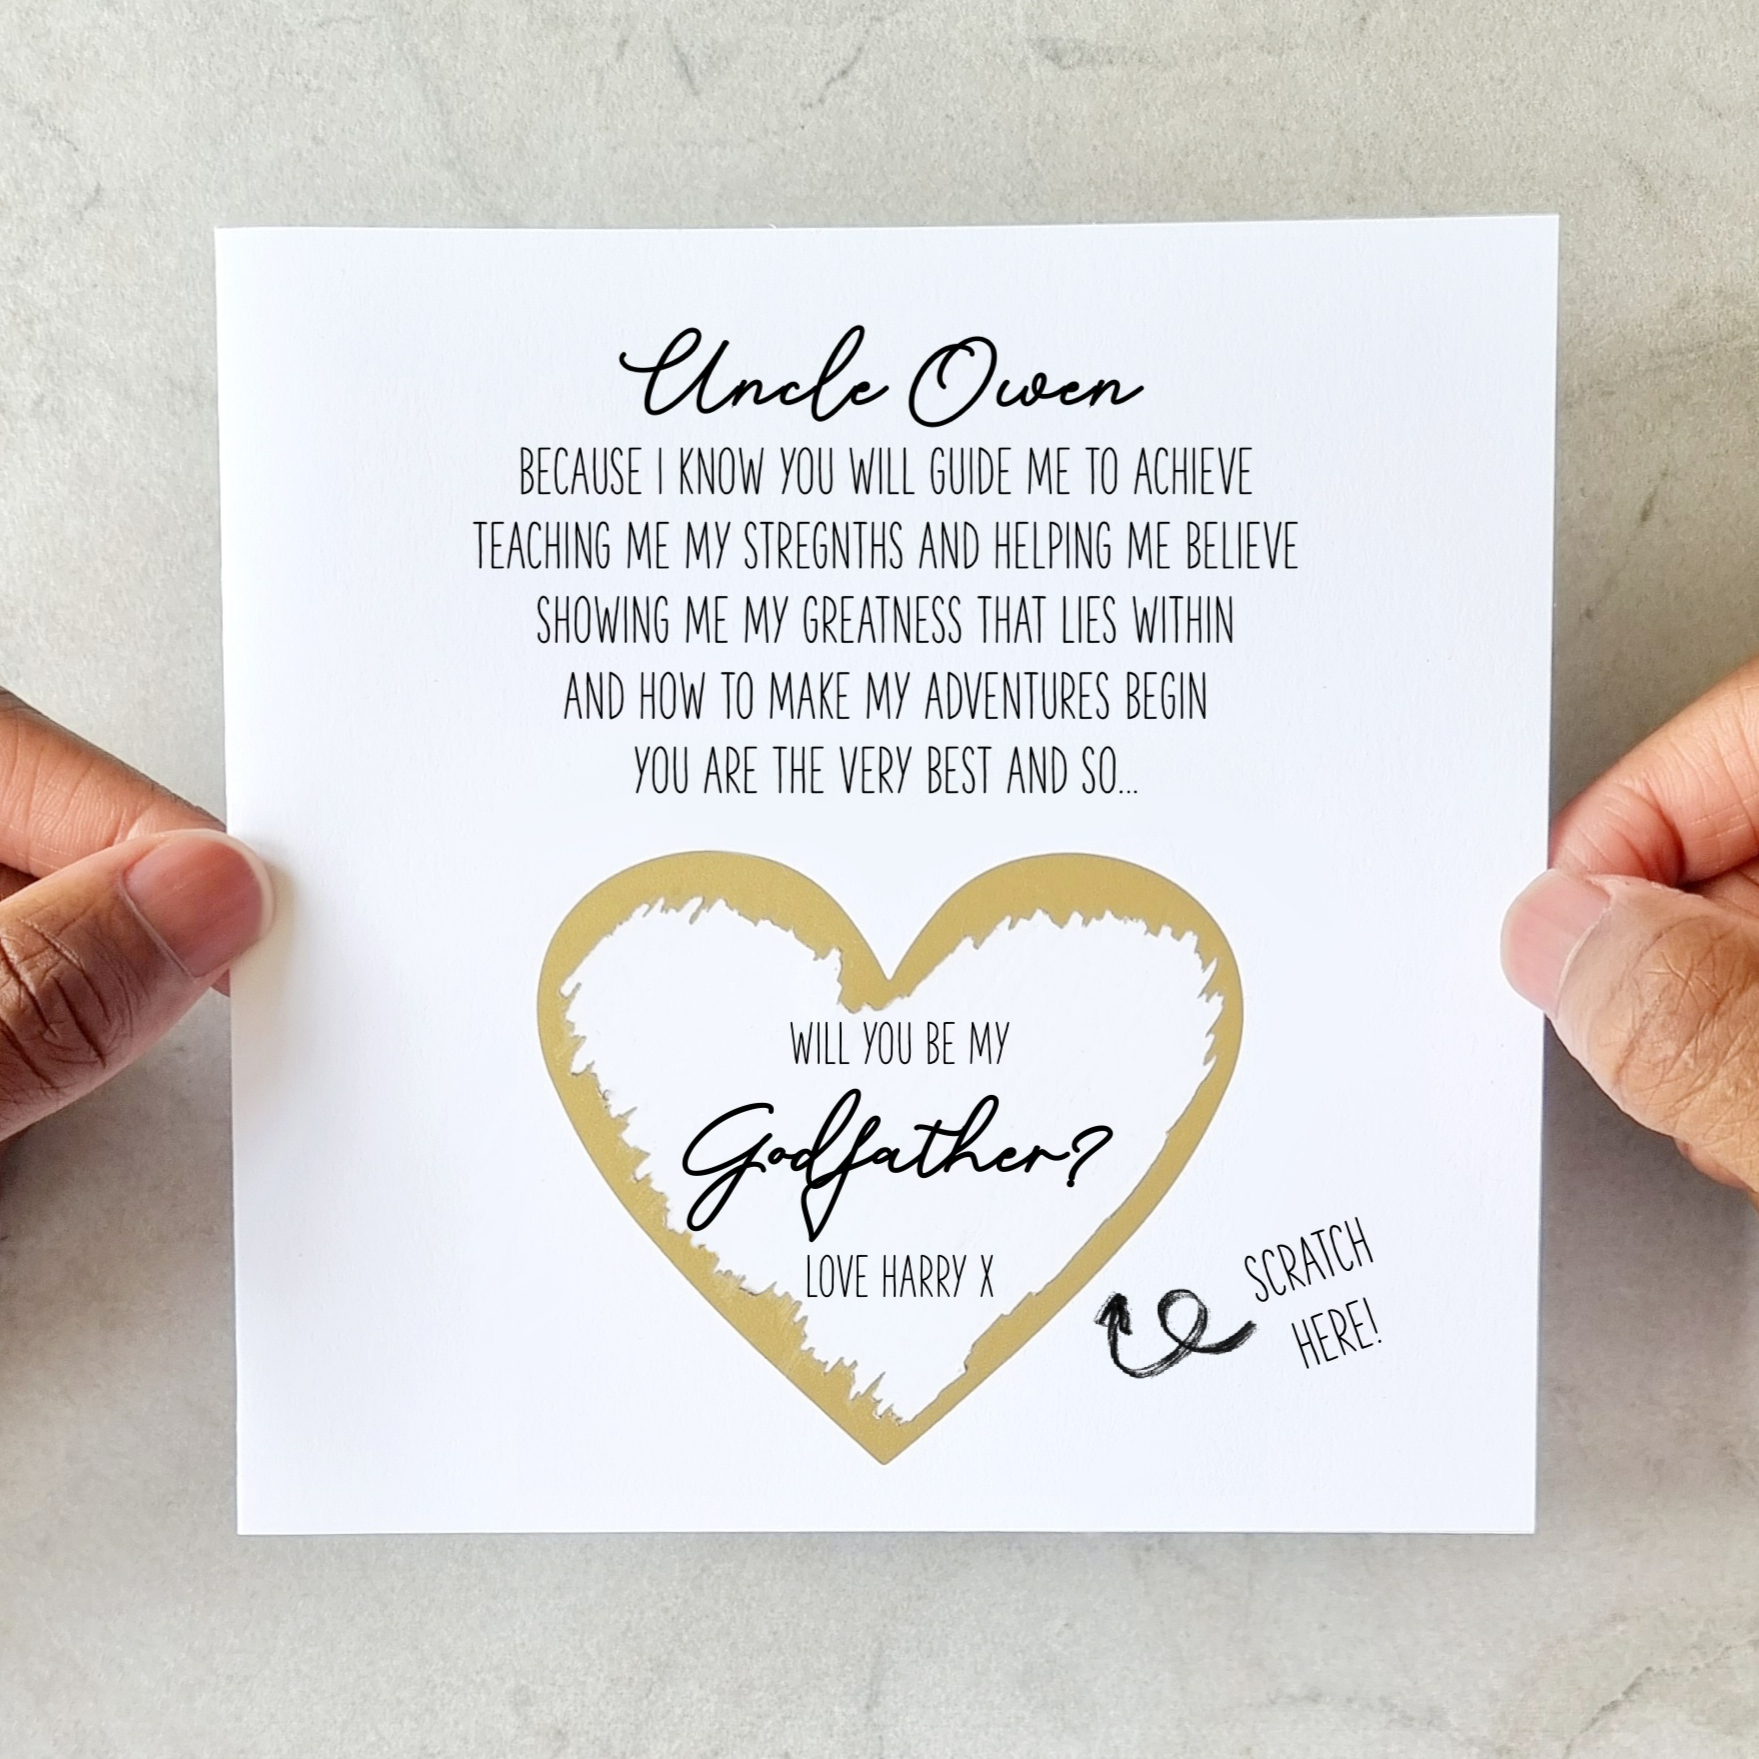 Uncle Owen
BECAUSE I KNOW YOU WILL GUIDE ME TO ACHIEVE
TEACHING ME MY STREGNTHS AND HELPING ME BELIEVE
SHOWING ME MY GREATNESS THAT LIES WITHIN
AND HOW TO MAKE MY ADVENTURES BEGIN
YOU ARE THE VERY BEST AND SO...
WILL YOU BE MY
Godfather?
LOVE HARRY X
SCRATCH
HERE!